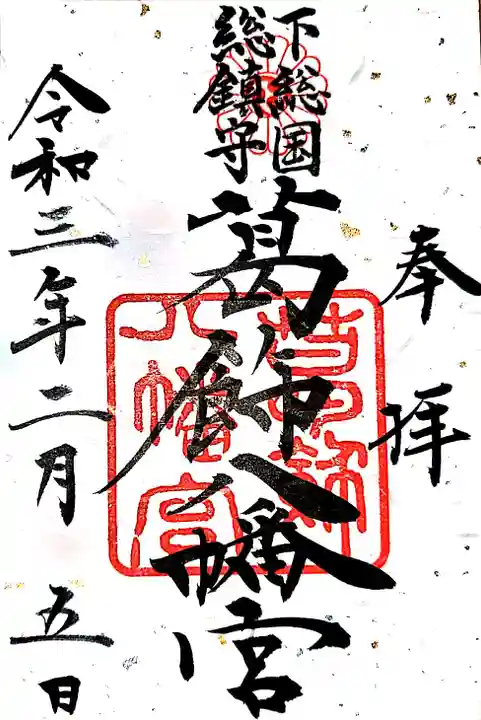 奉拝
下総国
総鎮守
葛飾八幡宮
葛飾
八幡宮
令和三年二月五日